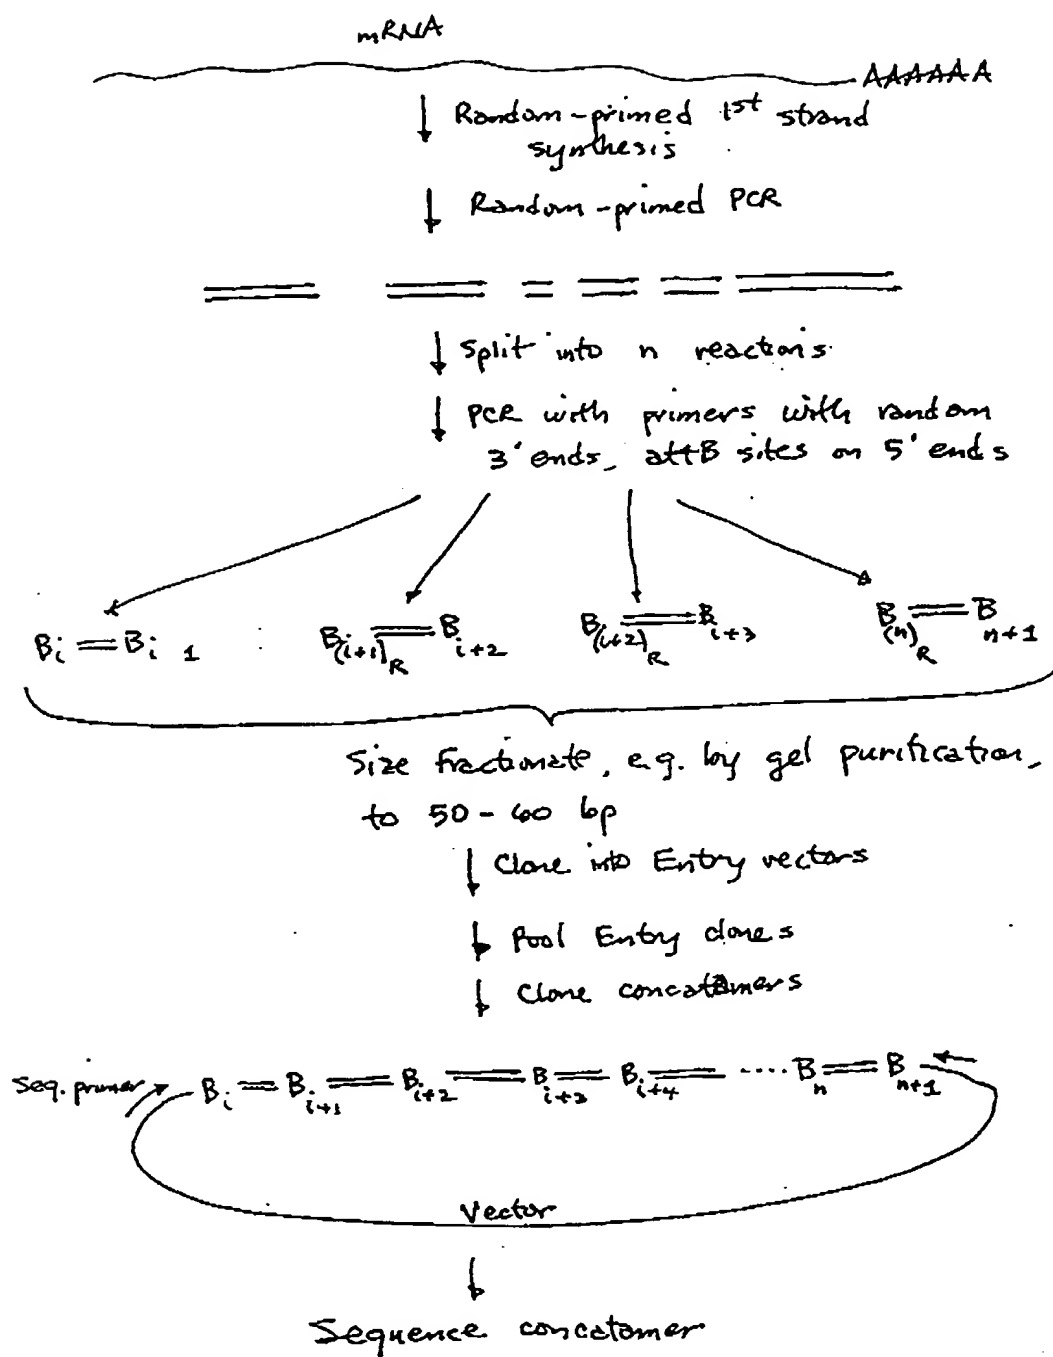 mRNA
AAAAAA
Random-primed 1st strand
synthesis
Random-primed PCR
Split into n reactions.
PCR with primers with random
3' ends, attB sites on 5' ends
Bi = Bi 1
B(i+1)R = Bi+2
B(i+2)R = Bi+3
B(n)R = Bn+1
Size fractionate, e.g. by gel purification,
to 50-60 bp
Clone into Entry vectors
Pool Entry clones
Clone concatamers
Seq. primer Bi = Bi+1 = Bi+2 = Bi+3 = Bi+4 = .... Bn = Bn+1
Vector
Sequence concatamer